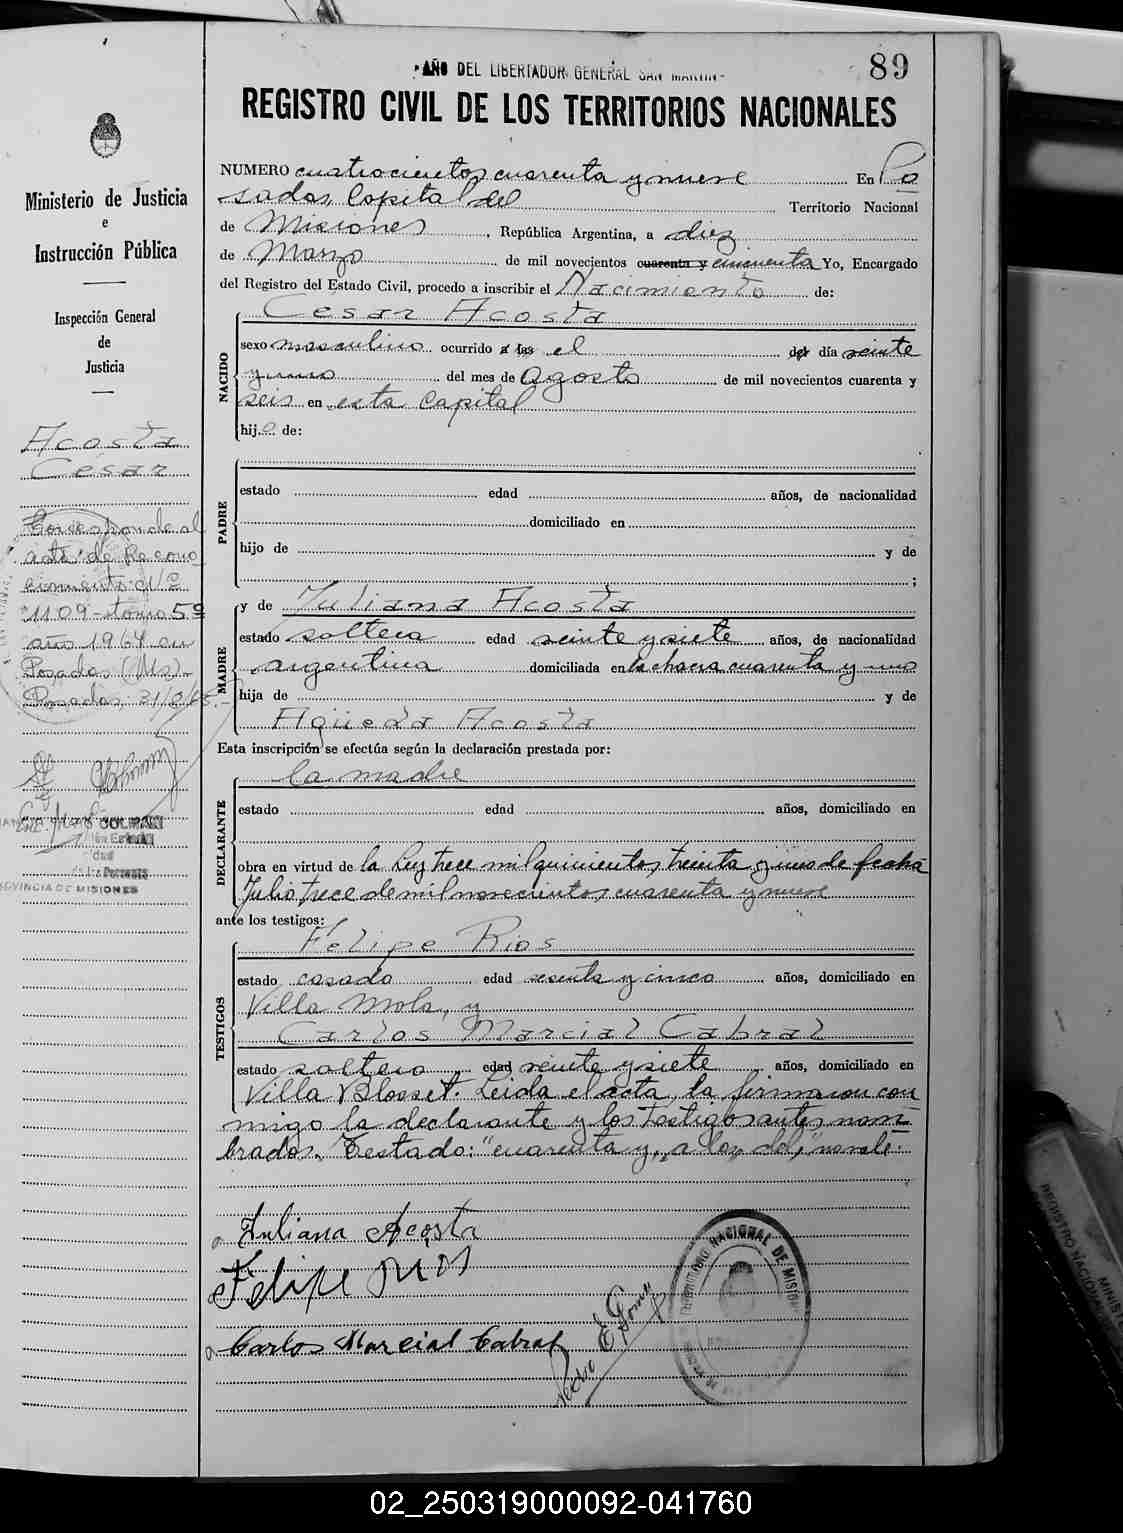 "AÑO DEL LIBERTADOR GENERAL SAN MARTIN"
89
REGISTRO CIVIL DE LOS TERRITORIOS NACIONALES
Ministerio de Justicia
e
Instrucción Pública
Inspección General
de
Justicia
Acosta
César
Corresponde al
acta de Recono
cimiento Nº
1109 - tomo 5º
año 1964 en
Posadas (Ms)-
Posadas, 31/
PROVINCIA DE MISIONES
NUMERO cuatrocientos cuarenta y nueve En Po
sadas, Capital del Territorio Nacional
de Misiones, República Argentina, a diez
de Marzo de mil novecientos cuarenta y cincuenta Yo, Encargado
del Registro del Estado Civil, procedo a inscribir el Nacimiento de:
NACIDO
César Acosta
sexo masculino ocurrido a las el del día veinte
y uno del mes de Agosto de mil novecientos cuarenta y
seis en esta Capital
hijo de:
PADRE
estado edad años, de nacionalidad
domiciliado en
hijo de y de
;
MADRE
y de Juliana Acosta
estado soltera edad veinte y siete años, de nacionalidad
argentina domiciliada en la chacra cuarenta y uno
hija de y de
Agüeda Acosta
Esta inscripción se efectúa según la declaración prestada por:
DECLARANTE
la madre
estado edad años, domiciliado en
obra en virtud de la Ley trece mil quinientos treinta y uno de fecha
Julio trece de mil novecientos cuarenta y nueve
ante los testigos:
TESTIGOS
Felipe Rios
estado casado edad sesenta y cinco años, domiciliado en
Villa Mola, y
Carlos Marcial Cabral
estado soltero edad veinte y siete años, domiciliado en
Villa Blosset. Leida el acta, la firmaron con
migo la declarante y los testigos antes nom-
brados. Testado: "cuarenta y, a las, del," no vale.
Juliana Acosta
Felipe Rios
Carlos Marcial Cabral
Pedro E.
TERRITORIO NACIONAL DE MISIONES
REGISTRO NACIONAL
02_250319000092-041760